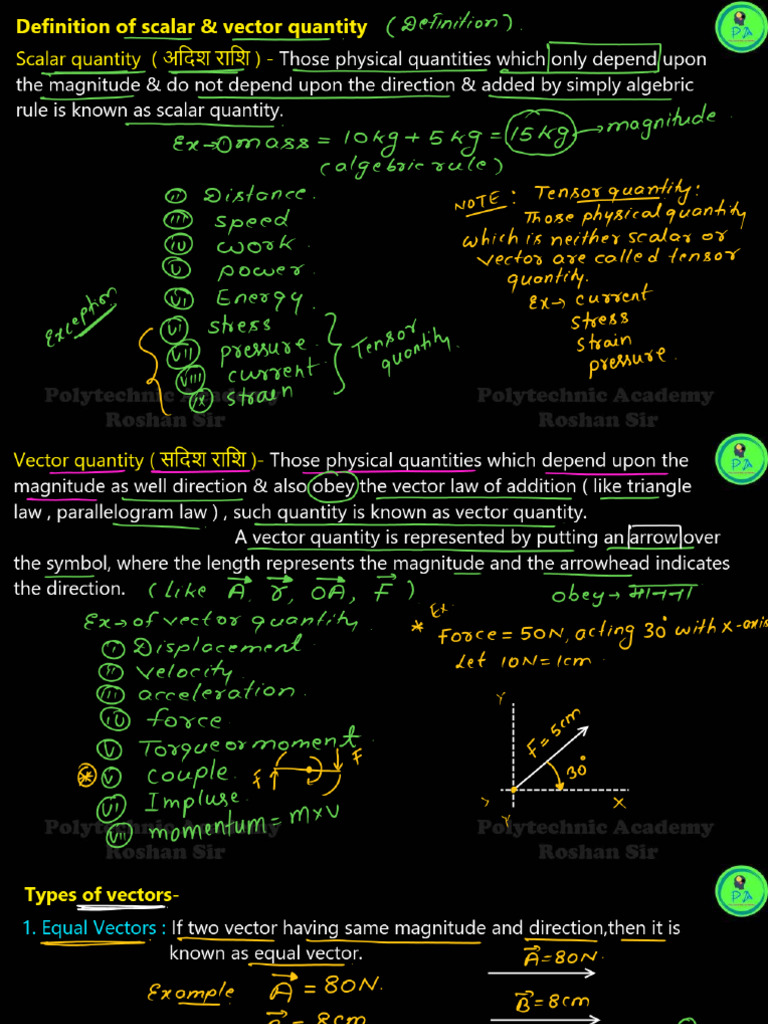 Definition of scalar & vector quantity (Definition).
PA
Scalar quantity ( अदिश राशि ) - Those physical quantities which only depend upon
the magnitude & do not depend upon the direction & added by simply algebric
rule is known as scalar quantity.
Ex→ ① mass = 10kg + 5kg = 15kg → magnitude
(algebric rule)
ii Distance.
iii speed
iv work.
v power.
vi Energy.
Exception
vi stress
vii pressure.
viii current
ix strain
Tensor quantity.
NOTE: Tensor quantity:
Those physical quantity
which is neither scalar or
vector are called tensor
quantity.
Ex→ current
stress
strain
pressure.
Polytechnic Academy
Roshan Sir
Polytechnic Academy
Roshan Sir
PA
Vector quantity ( सदिश राशि )- Those physical quantities which depend upon the
magnitude as well direction & also obey the vector law of addition ( like triangle
law , parallelogram law ) , such quantity is known as vector quantity.
A vector quantity is represented by putting an arrow over
the symbol, where the length represents the magnitude and the arrowhead indicates
the direction. (Like A, r, OA, F)
obey→ मानना
Ex→ of vector quantity.
i Displacement
ii velocity.
iii acceleration
iv force
v Torque or moment
* v couple. F F
vi Impluse.
vii momentum = m×v
* Ex. Force = 50N, acting 30° with x-axis
Let 10N = 1cm.
Y
F = 5cm
30°
X
Y
Polytechnic Academy
Roshan Sir
Polytechnic Academy
Roshan Sir
Types of vectors-
PA
1. Equal Vectors : If two vector having same magnitude and direction,then it is
known as equal vector.
A = 80N.
Example A = 80N.
B = 8cm
= 8cm